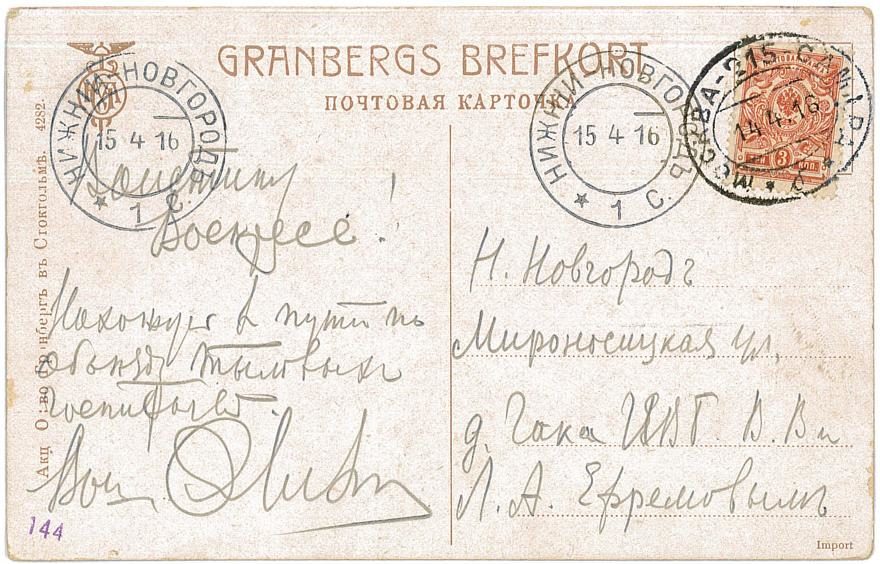 GRANBERGS BREFKORT
ПОЧТОВАЯ КАРТОЧКА
НИЖНИЙ-НОВГОРОДЪ
15 4 16
1 С.
НИЖНИЙ-НОВГОРОДЪ
15 4 16
1 С.
МОСКВА-215 САМАРА
14.4.16
3
Воскресе!
Нахожусь в пути по
объезду тыловых
Ваш
Н. Новгородъ
Мироносицкая ул.
д. Гака В. В.
Л. А. Ефремовымъ
Акц О-во Гранбергъ въ Стокгольмѣ. 4282.
144
Import